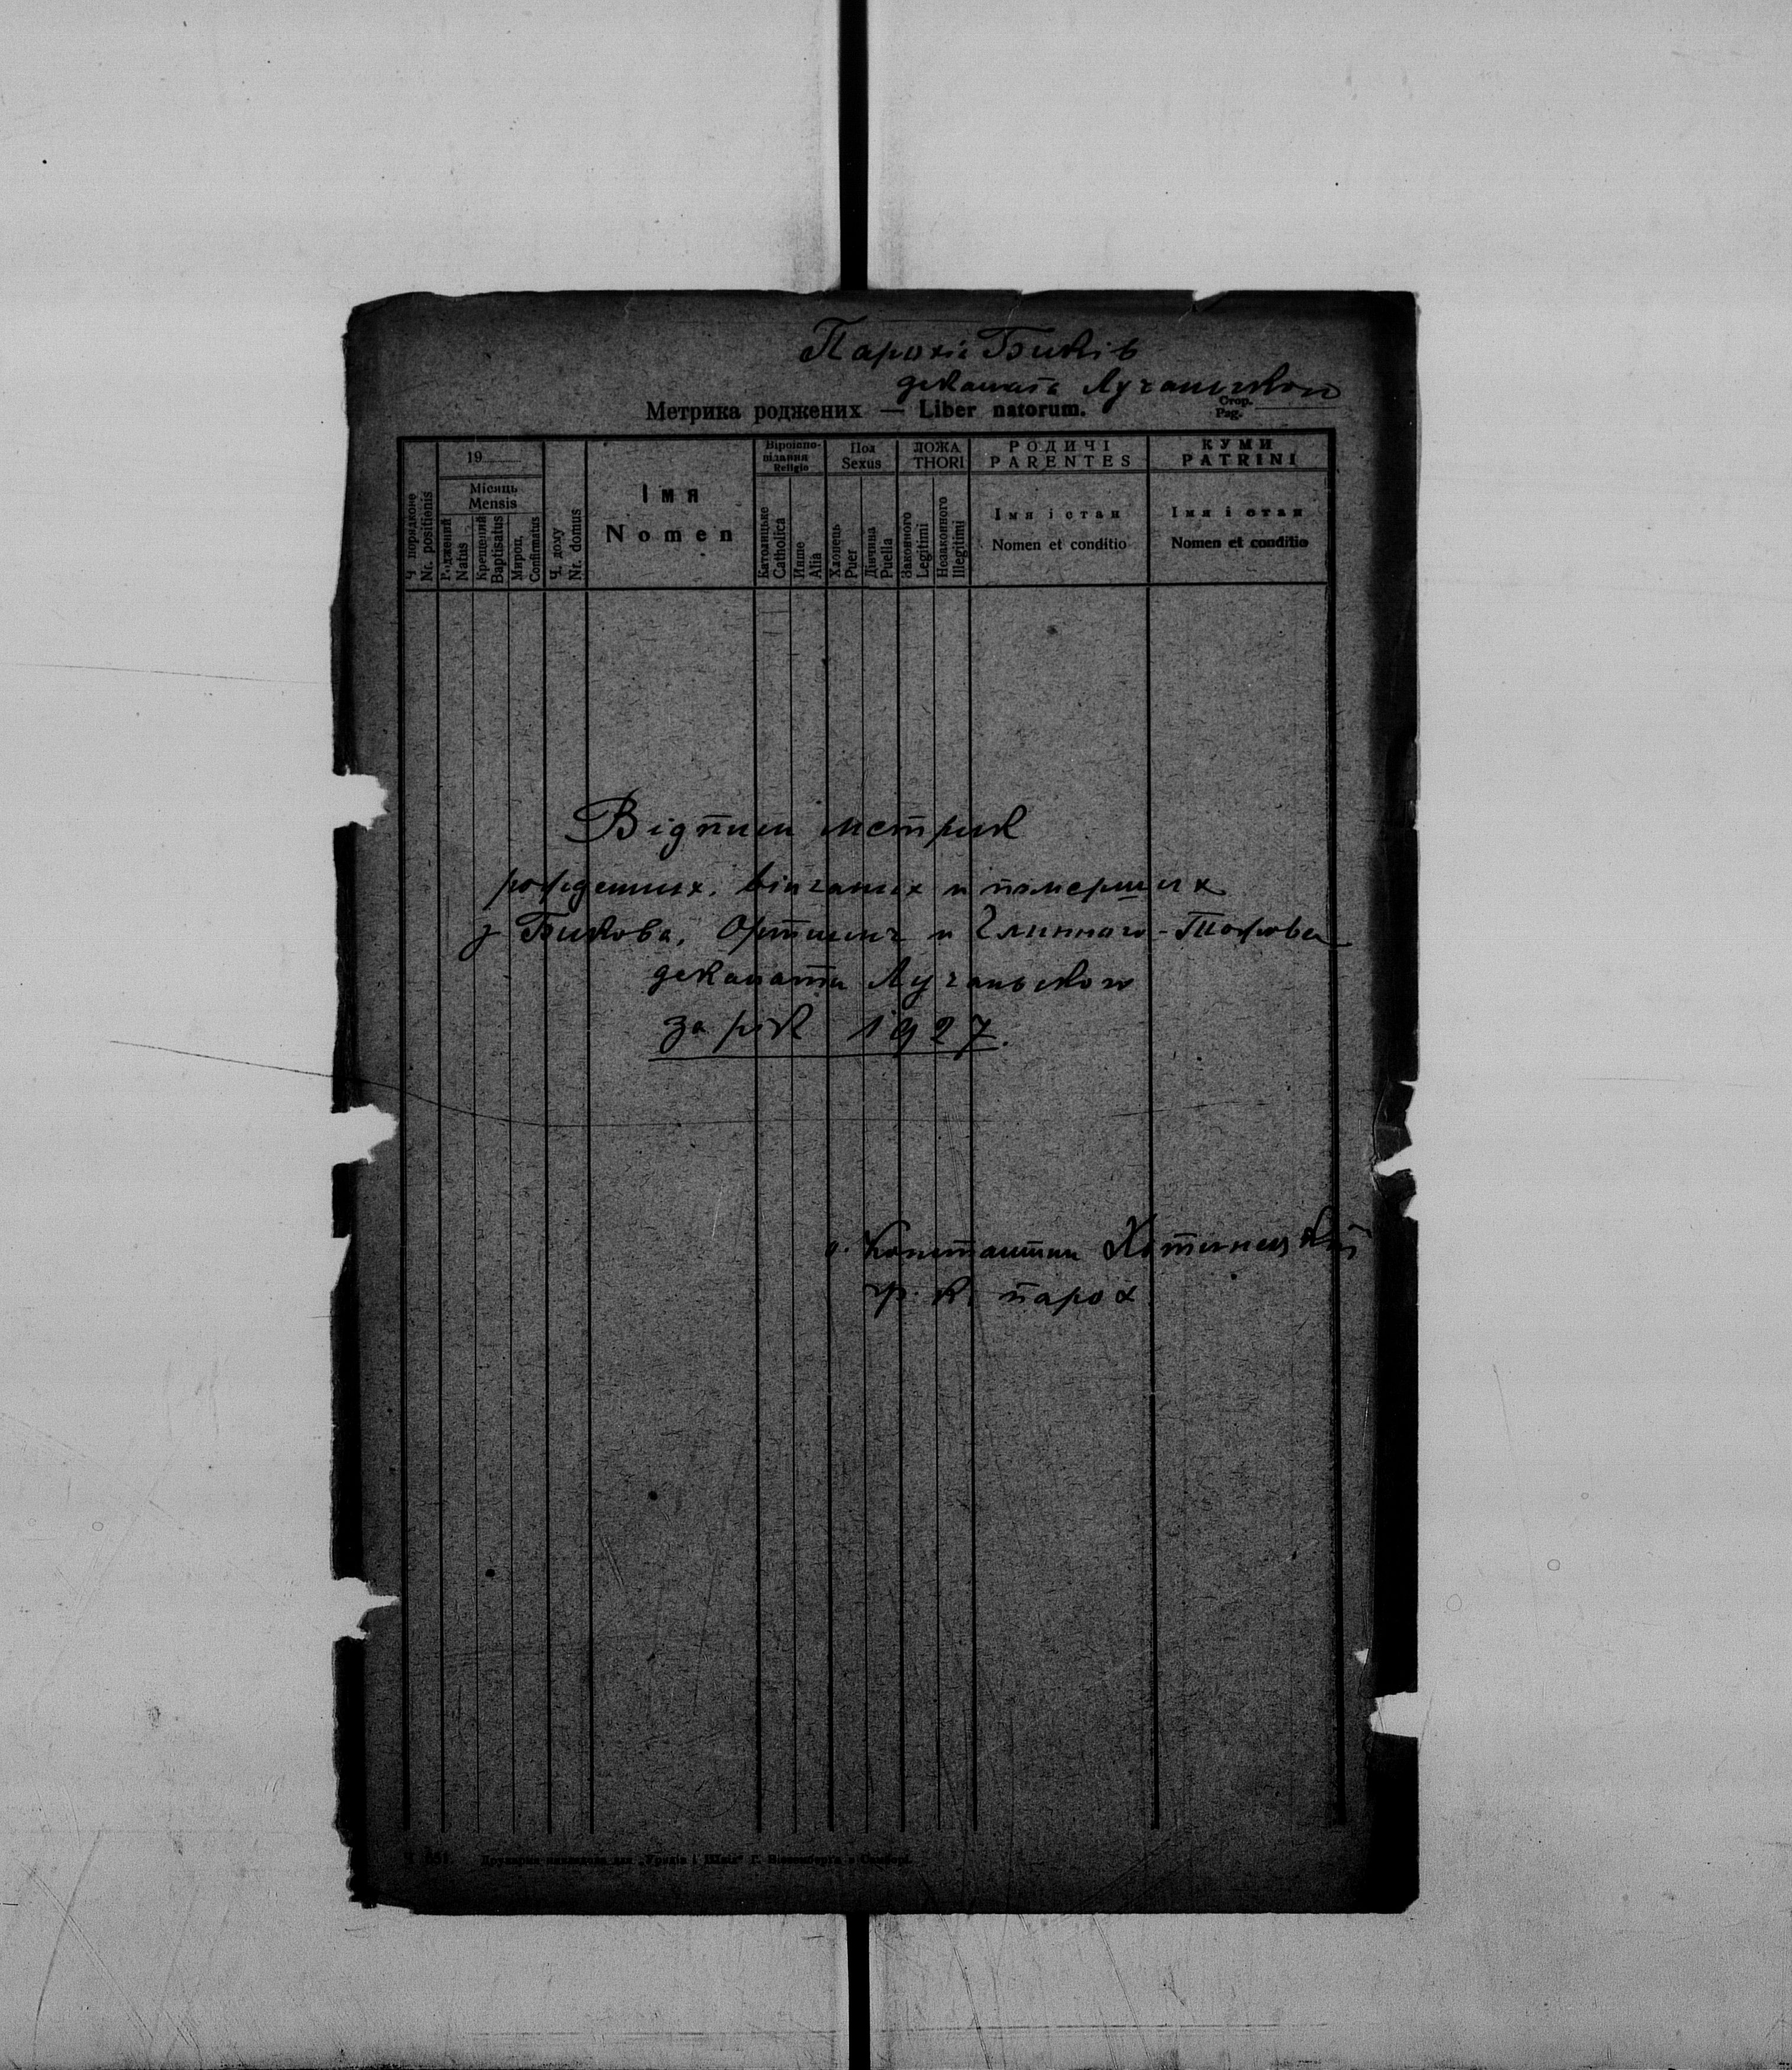 Парохія Биків
деканата Лучанского
Метрика роджених — Liber natorum.
Стор.
Pag.
Ч. порядкове
Nr. positionis
19
Місяць
Mensis
Роджений
Natus
Крещений
Baptisatus
Мироп.
Confirmatus
Ч. дому
Nr. domus
Імя
Nomen
Віроіспо-
відання
Religio
Католицьке
Catholica
Инше
Alia
Пол
Sexus
Хлопець
Puer
Дівчина
Puella
ЛОЖА
THORI
Законного
Legitimi
Незаконного
Illegitimi
РОДИЧІ
PARENTES
Імя і стан
Nomen et conditio
КУМИ
PATRINI
Імя і стан
Nomen et conditio
Відписи метрик
рожденных, вінчаных и помершых
з Бикова, Ортинич и
деканата Лучаньского
за рік 1927.
о. Константин Хотинецкий
гр. к. парох